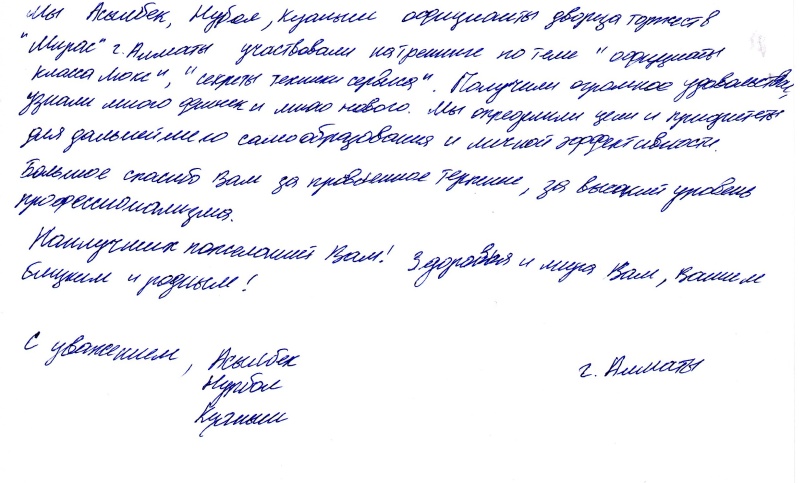 Мы Асылбек, Нурбол, Куаныш официанты дворца торжеств
"Мирас" г. Алматы участвовали на тренинге по теме "официанты
класса Люкс", "секреты техники сервиса". Получили огромное удовольствие,
узнали много фишек и много нового. Мы определили цели и приоритеты
для дальнейшего самообразования и личной эффективности.
Большое спасибо Вам за проведенное тернинг, за высокий уровень
профессионализма.
Наилучших пожеланий Вам! Здоровья и мира Вам, Вашим
близким и родным!
С уважением, Асылбек
Нурбол
Куаныш
г. Алматы